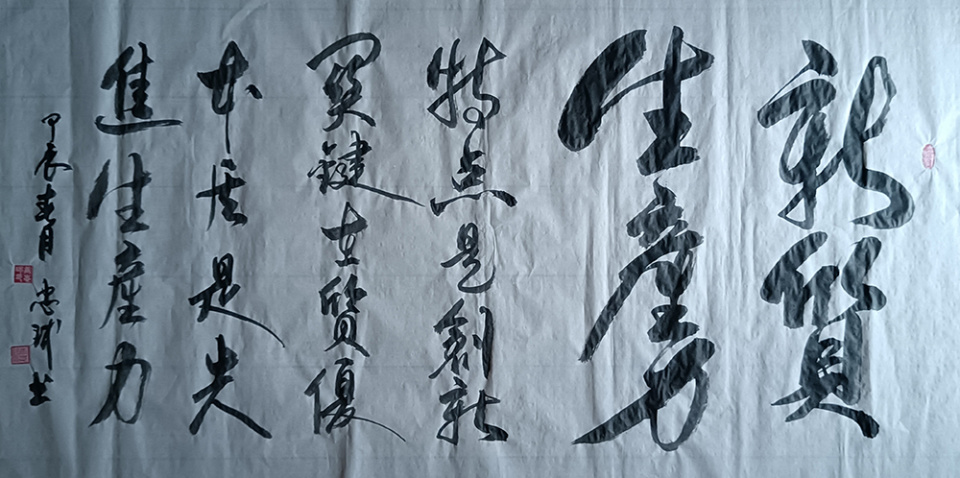 新質
生產力
特点是創新
関鍵在質優
本质是先
進生産力
甲辰春月 忠球书